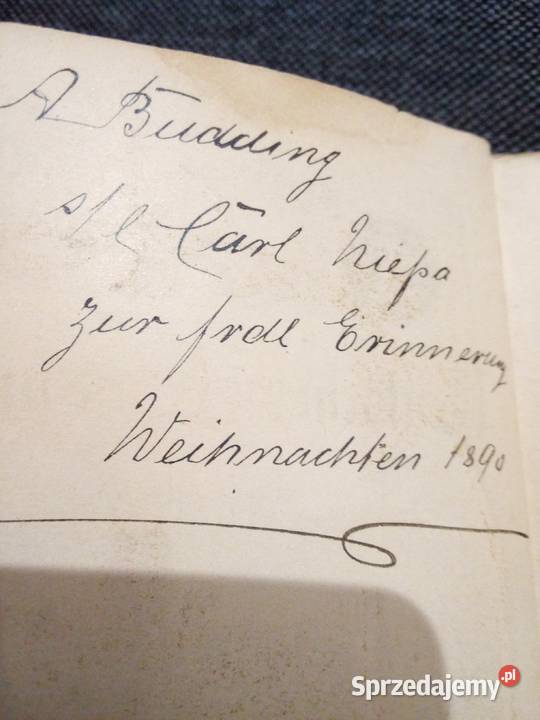 A. Budding
s/l Carl Niepa
zur frdl Erinnerung
Weihnachten 1890
Sprzedajemy.pl